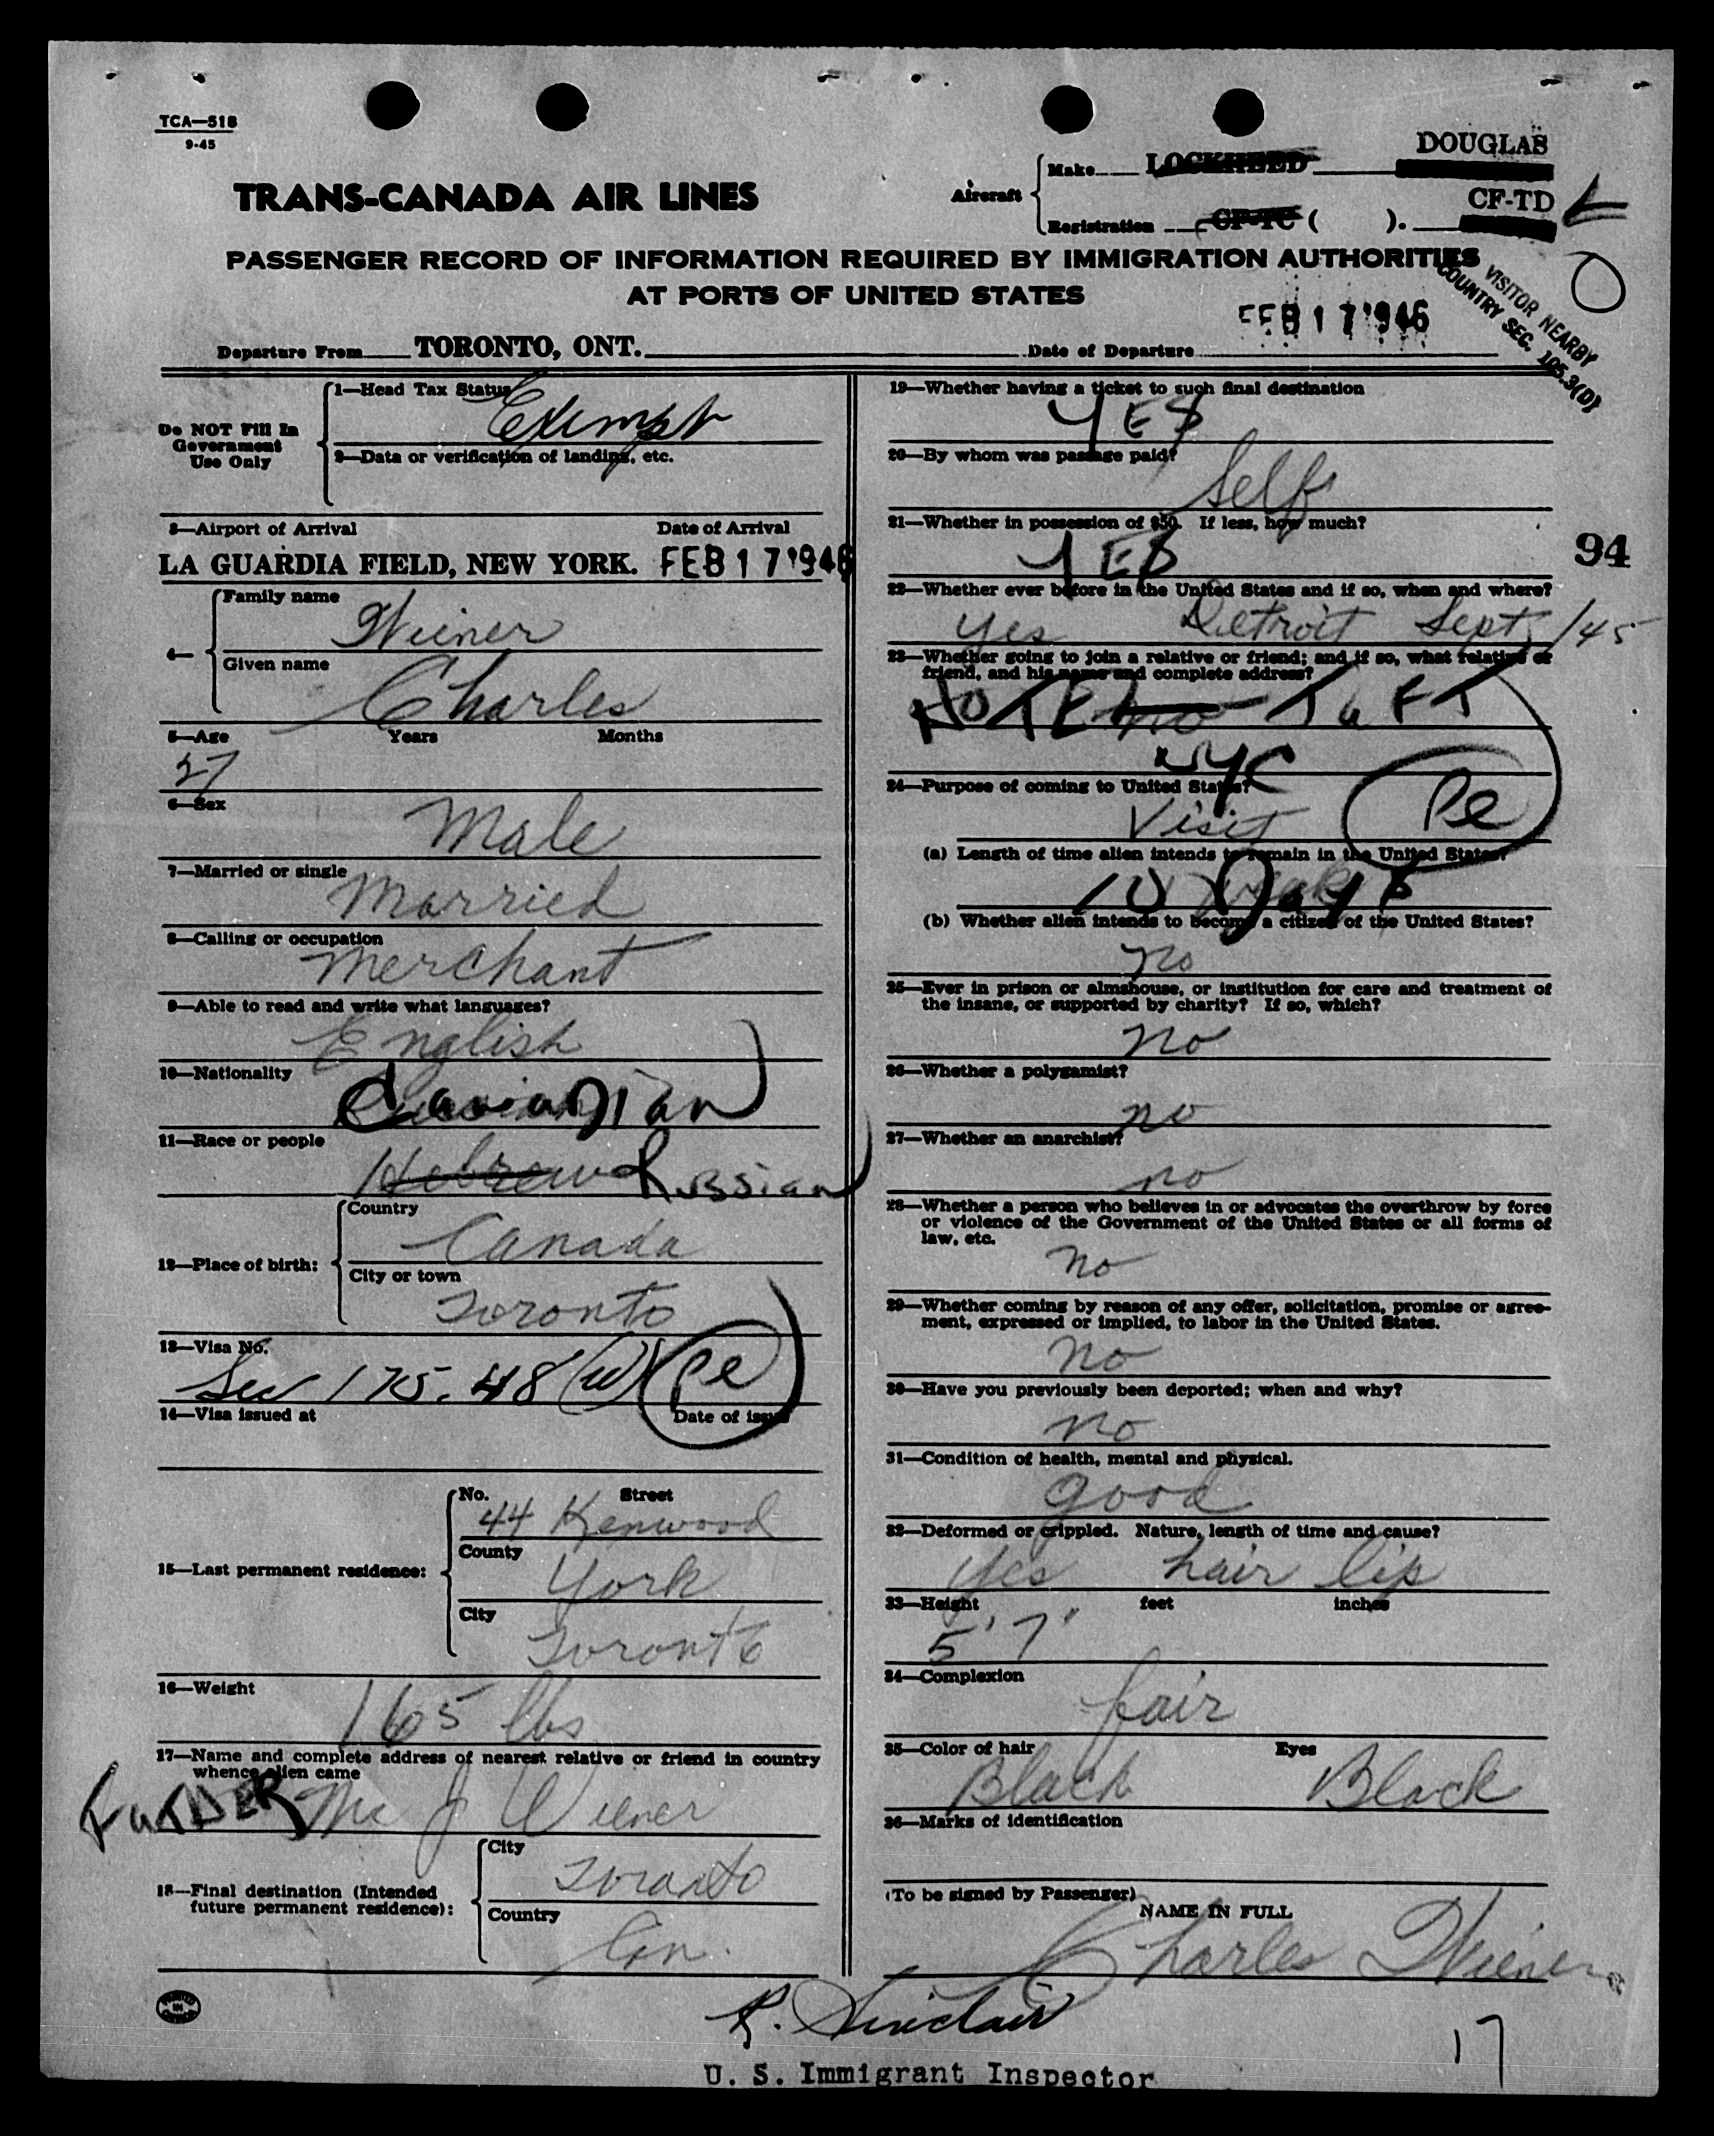 TCA—518
9-45
DOUGLAS
Make LOCKHEED
TRANS-CANADA AIR LINES
Aircraft
CF-TD
Registration CF-TC ( ).
PASSENGER RECORD OF INFORMATION REQUIRED BY IMMIGRATION AUTHORITIES
AT PORTS OF UNITED STATES
VISITOR NEARBY
COUNTRY SEC. 105.3(D)
FEB 17 1946
Departure From TORONTO, ONT. Date of Departure
Do NOT Fill In
Government
Use Only
1—Head Tax Status
Exempt
2—Data or verification of landing, etc.
3—Airport of Arrival Date of Arrival
LA GUARDIA FIELD, NEW YORK. FEB 17 1946
4—
Family name
Wiener
Given name
Charles
5—Age Years Months
27
6—Sex
Male
7—Married or single
Married
8—Calling or occupation
Merchant
9—Able to read and write what languages?
English
10—Nationality
Canadian
11—Race or people
Hebrew Russian
12—Place of birth:
Country
Canada
City or town
Toronto
13—Visa No.
Sec 175.48 (w) Pe
14—Visa issued at Date of issue
15—Last permanent residence:
No. Street
44 Kenwood
County
York
City
Toronto
16—Weight
165 lbs
17—Name and complete address of nearest relative or friend in country
whence alien came
FATDER Mr J Wiener
18—Final destination (Intended
future permanent residence):
City
Toronto
Country
Can.
19—Whether having a ticket to such final destination
YES
20—By whom was passage paid?
Self
21—Whether in possession of $50. If less, how much?
YES
94
22—Whether ever before in the United States and if so, when and where?
Yes Detroit Sept /45
23—Whether going to join a relative or friend; and if so, what relative or
friend, and his name and complete address?
HOTEL no TAFT
NYC
24—Purpose of coming to United States?
Visit Pe
(a) Length of time alien intends to remain in the United States?
10 Days
(b) Whether alien intends to become a citizen of the United States?
no
25—Ever in prison or almshouse, or institution for care and treatment of
the insane, or supported by charity? If so, which?
no
26—Whether a polygamist?
no
27—Whether an anarchist?
no
28—Whether a person who believes in or advocates the overthrow by force
or violence of the Government of the United States or all forms of
law, etc.
no
29—Whether coming by reason of any offer, solicitation, promise or agree-
ment, expressed or implied, to labor in the United States.
no
30—Have you previously been deported; when and why?
no
31—Condition of health, mental and physical.
good
32—Deformed or crippled. Nature, length of time and cause?
yes hair lip
33—Height feet inches
5' 7"
34—Complexion
fair
35—Color of hair Eyes
Black Black
36—Marks of identification
(To be signed by Passenger)
NAME IN FULL
Charles Wiener
R. Sinclair
U. S. Immigrant Inspector
17